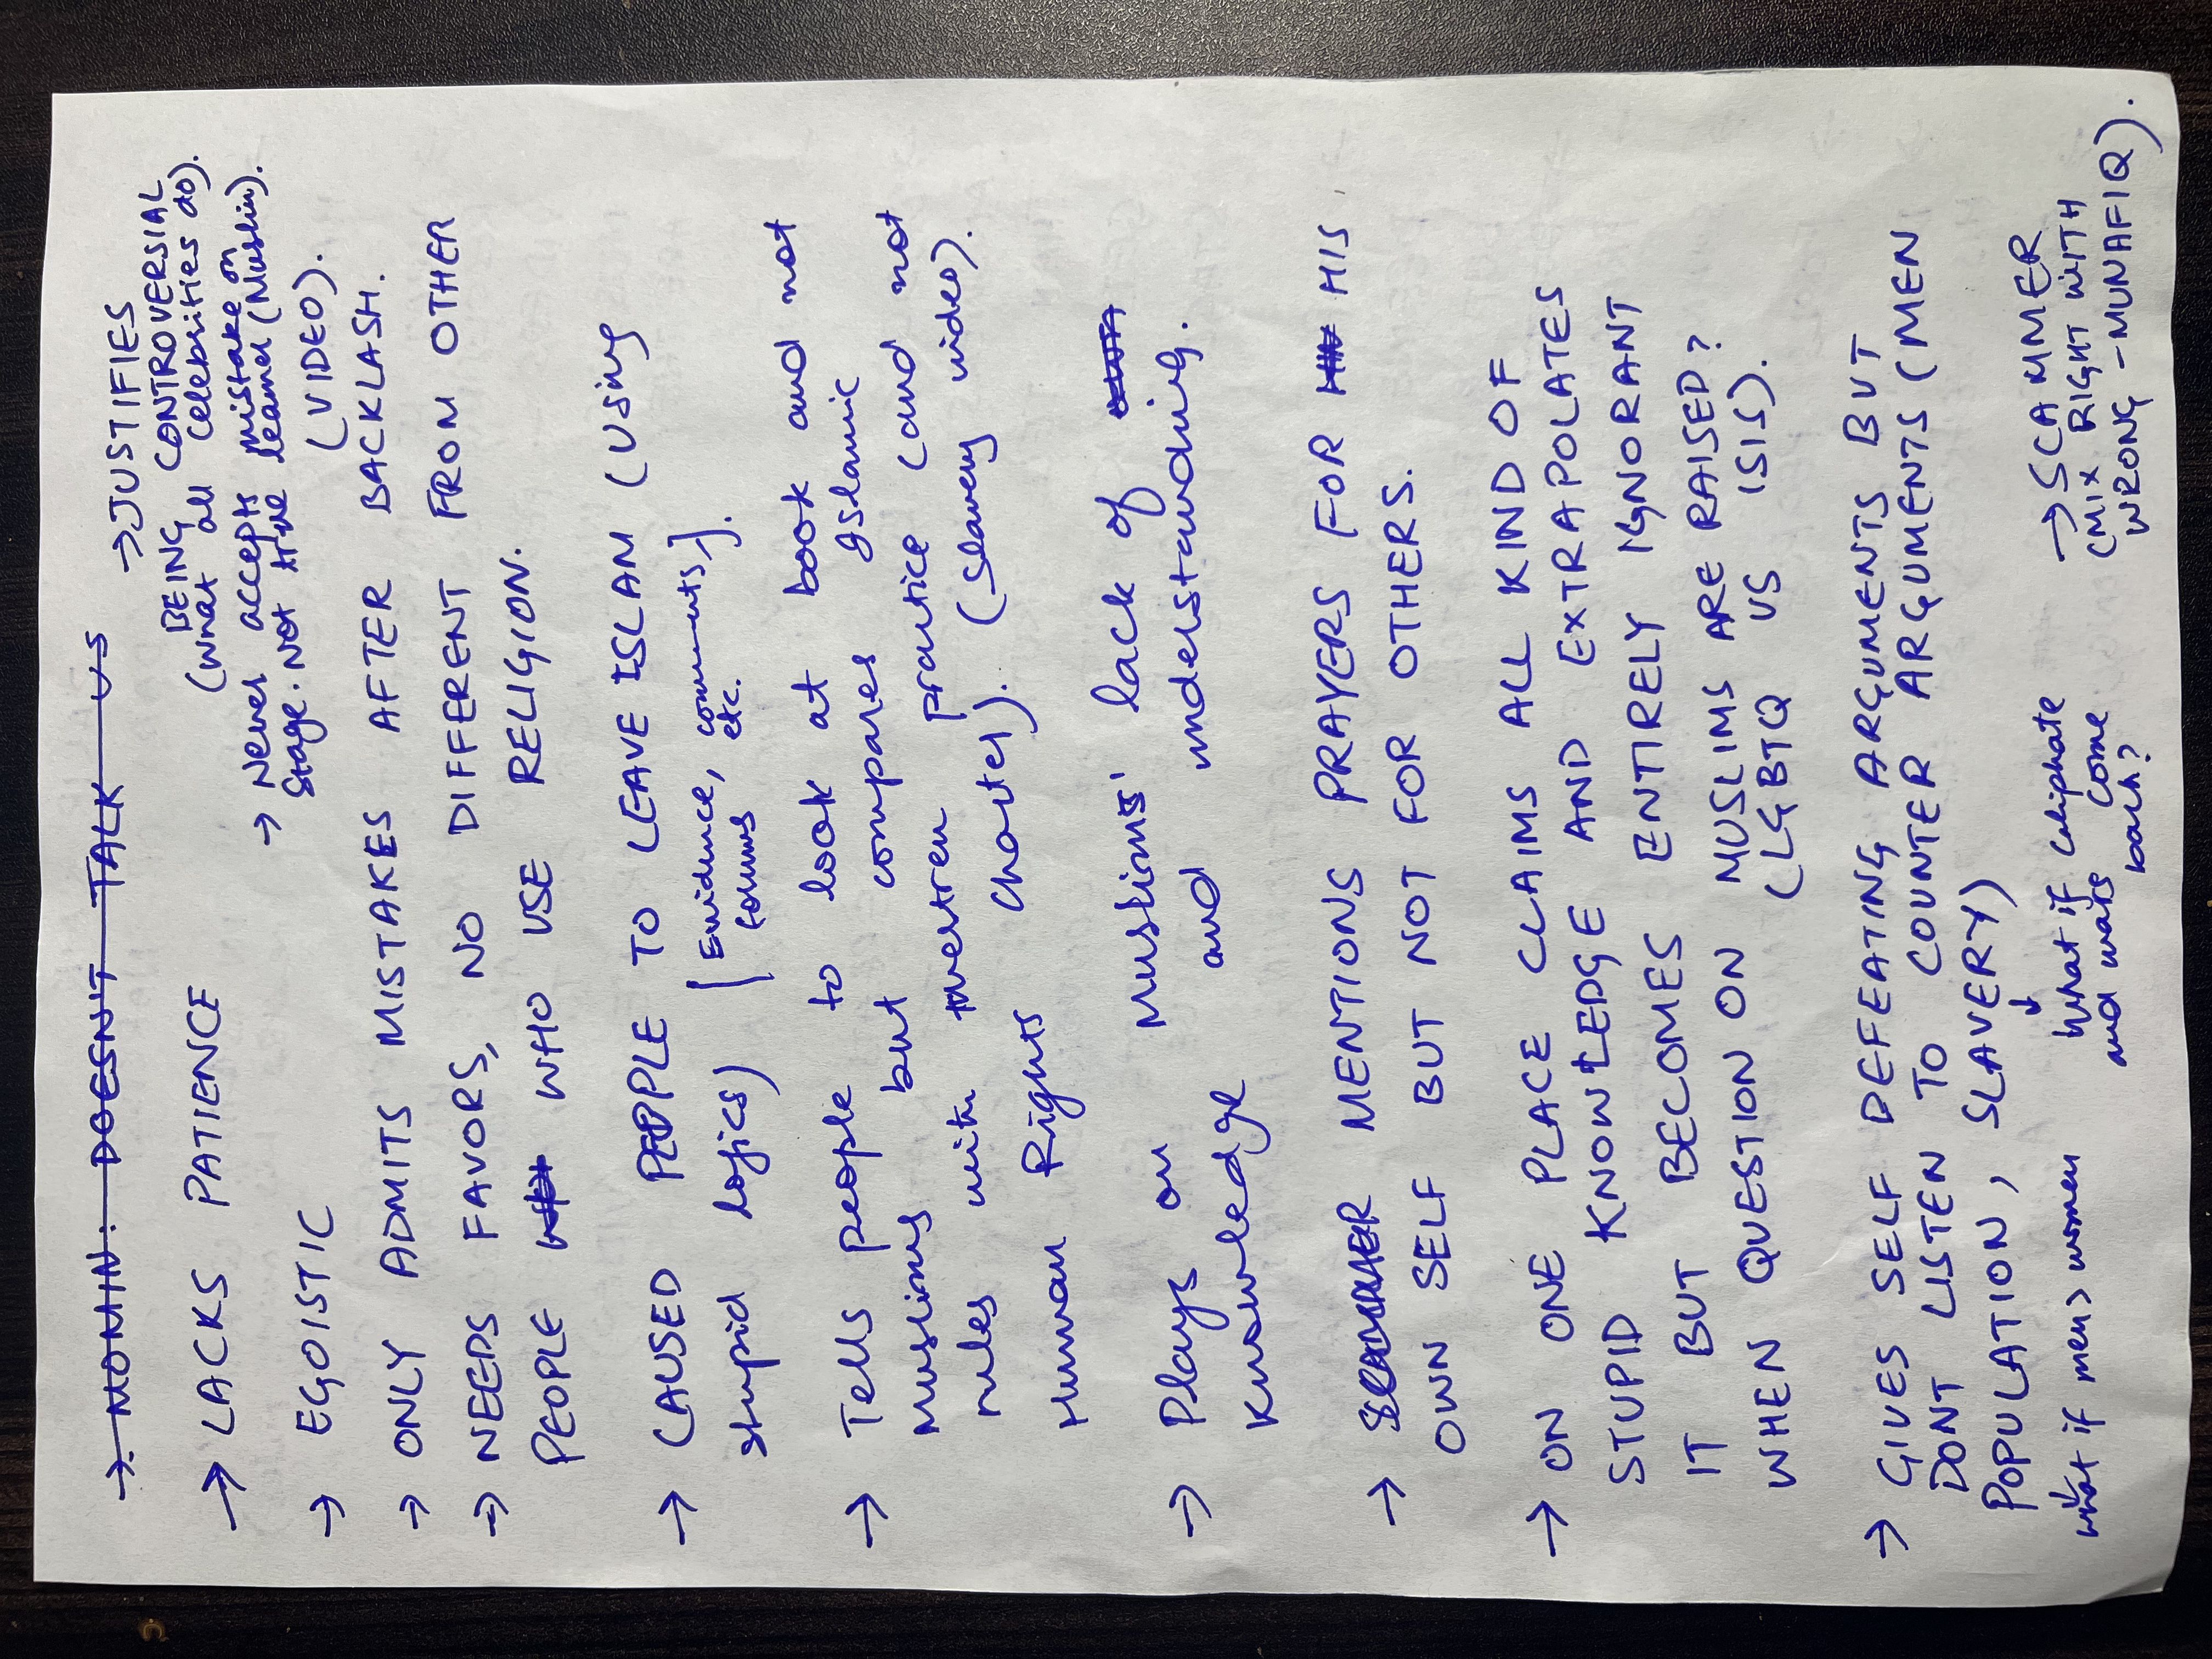 → MOMIN: DOESNT TALK US
→ JUSTIFIES
BEING CONTROVERSIAL
(what all celebrities do).
→ LACKS PATIENCE
→ Never accepts mistake on
stage. Not true learner (Muslim).
(VIDEO).
→ EGOISTIC
→ ONLY ADMITS MISTAKES AFTER BACKLASH.
→ NEEDS FAVORS, NO DIFFERENT FROM OTHER
PEOPLE WHO USE RELIGION.
→ CAUSED PEOPLE TO LEAVE ISLAM (using
stupid logics) [Evidence, comments,
etc.].
→ Tells people to look at book and not
muslims but compares Islamic
rules with western practice (and not
Human Rights Charter). (slavery video).
→ Plays on Muslims' lack of
knowledge and understanding.
→ MENTIONS PRAYERS FOR HIS
OWN SELF BUT NOT FOR OTHERS.
→ ON ONE PLACE CLAIMS ALL KIND OF
STUPID KNOWLEDGE AND EXTRAPOLATES
IT BUT BECOMES ENTIRELY IGNORANT
WHEN QUESTION ON MUSLIMS ARE RAISED?
(LGBTQ VS ISIS).
→ GIVES SELF DEFEATING ARGUMENTS BUT
DONT LISTEN TO COUNTER ARGUMENTS (MEN
POPULATION, SLAVERY)
what if men > women
what if caliphate
and wars come
back?
→ SCAMMER
(MIX RIGHT WITH
WRONG - MUNAFIQ).